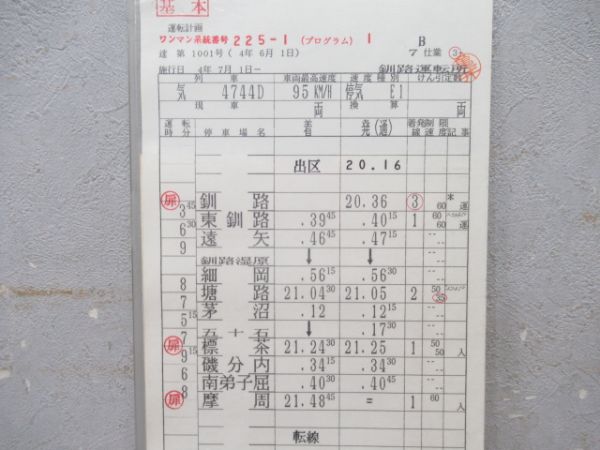 基本
運転計画
ワンマン系統番号 225-1 (プログラム) 1 B
達 第 1001号( 4年 6月 1日) ア 仕業 3
施行日 4年 7月 1日～ 釧路運転所
列 車 車両最高速度 速度種別 けん引定数
気 4744D 95KM/H 停気 E1 両
現 車 両 換 算
運転時分 停車場名 着 発(通) 着発線 制限速度 記事
出区 20.16
扉 釧路 20.36 3 60 運
3 45
東釧路 .39 45 .40 15 1 60 60 運
6 30
遠矢 .46 45 .47 15
9
釧路湿原 ↓ ↓
細岡 .56 15 .56 30
8
塘路 21.04 30 21.05 2 50 35
7
茅沼 .12 .12 15
5 15
五十石 ↓ .17 30
7
扉 標茶 21.24 30 21.25 1 50 50 入
9 15
磯分内 .34 15 .34 30
6
南弟子屈 .40 30 .40 45
8
扉 摩周 21.48 45 = 1 60 入
転線